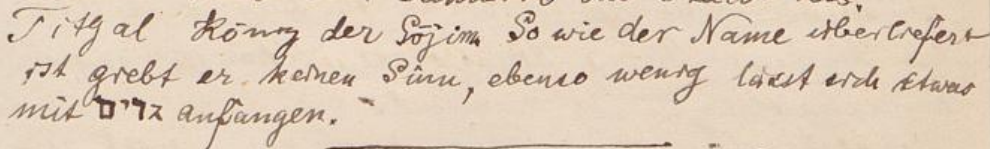 Titgal König der Gōjim So wie der Name überliefert
ist giebt er keinen Sinn, ebenso wenig lässt sich etwas
mit גוים anfangen.